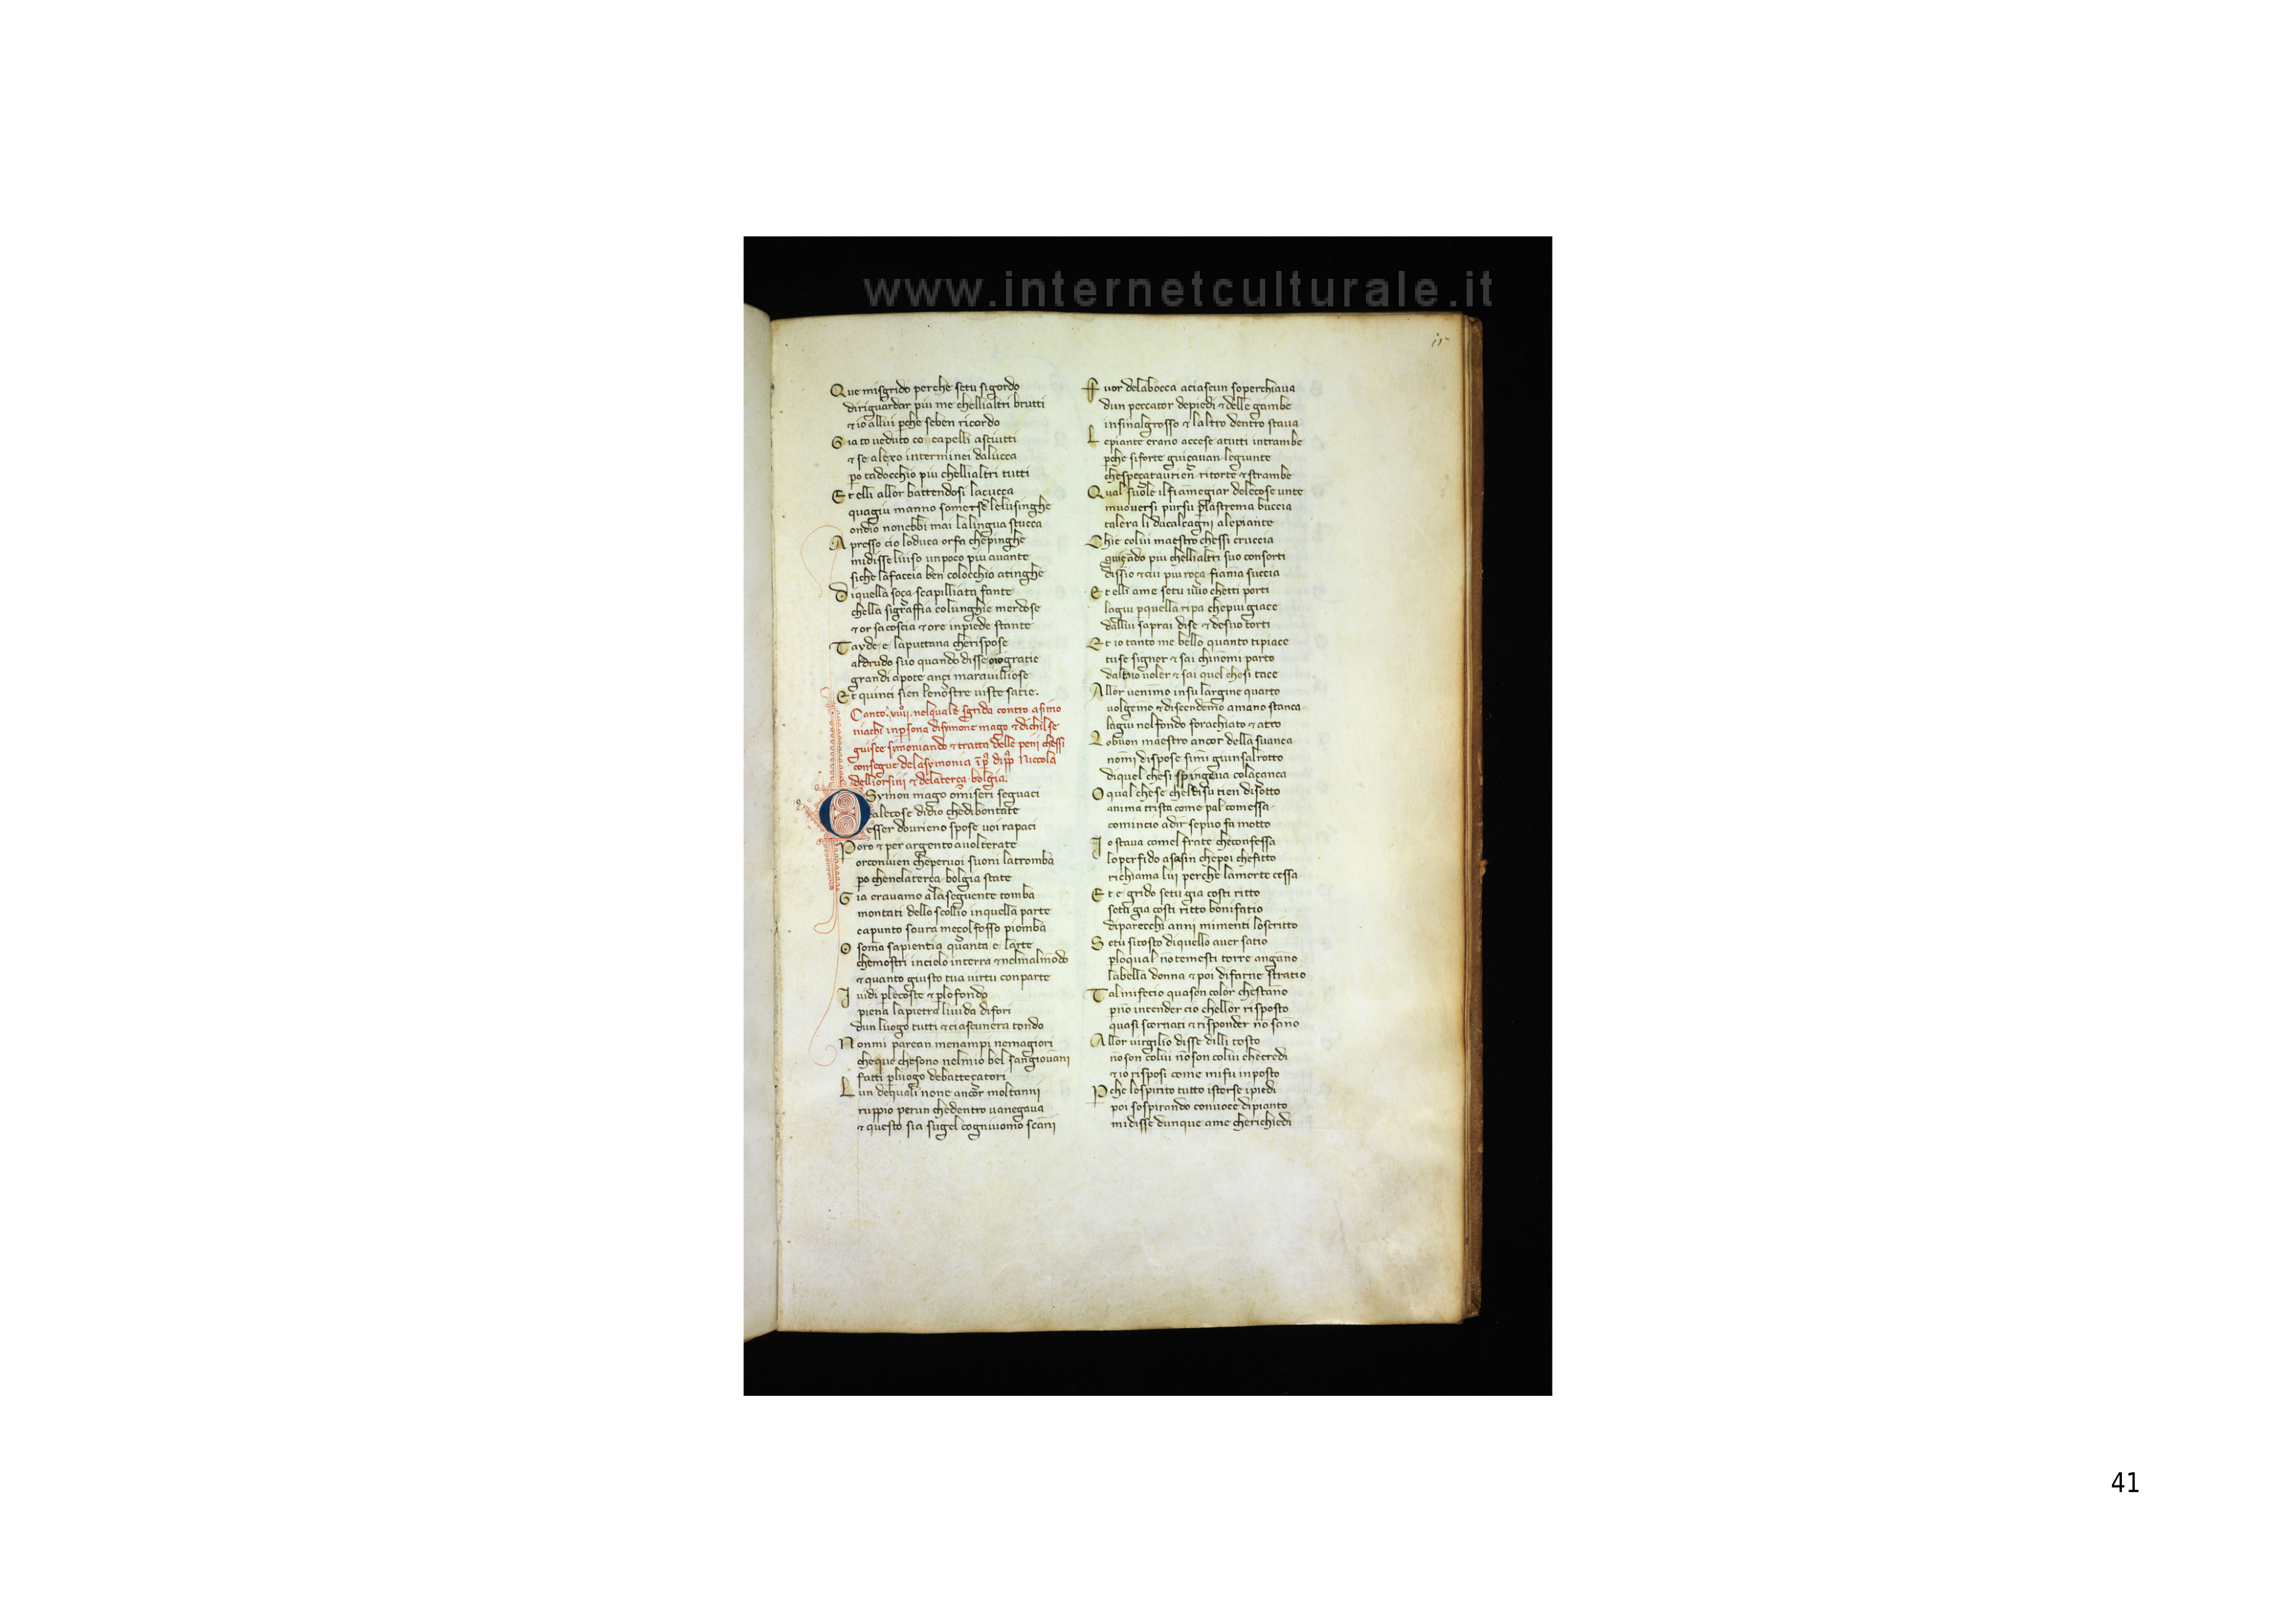 www.internetculturale.it
Que misgrido perche setu sigordo
diriguardar piu me chellialtri brutti
⁊ io allui pche seben ricordo
Gia to veduto co capelli asciutti
⁊ se alexo interminei dalucca
po tadocchio piu chellialtri tutti
Et elli allor battendosi lacucca
quagiu manno somerse lelusinghe
ondio nonebbi mai lalingua stucca
Apresso cio loduca or fa chepinghe
midisse luiso unpoco piu auante
siche lafaccia ben colocchio atinghe
Diquella soça scapilliata fante
chella sigraffia colunghie merdose
⁊ or sacoscia ⁊ ore inpiede stante
Tayde e laputtana cherispose
aldrudo suo quando disse oiogratie
grandi apote ançi marauilliose
Et quinci sien lenostre uiste satie.
Canto. .nelquale sgrida contro asimo
niachi inpsona disymone mago ⁊ dichilse
guisce simoniando ⁊ tratta delle peni chessi
consegue delasymonia dipp Niccola
delliorsini ⁊ delaterça bolgia.
OSymon mago omiseri seguaci
alecose didio chedibontate
esser dourieno spose uoi rapaci
Poro ⁊ per argento auolterate
orconuien cheperuoi suoni latromba
po chenelaterça bolgia state
Gia erauamo alaseguente tomba
montati dello scollio inquella parte
capunto soura meçol fosso piomba
O soma sapientia quanta e larte
chemostri incielo interra ⁊ nelmalmōdo
⁊ quanto giusto tua uirtu conparte
I uidi plecoste ⁊ plofondo
piena lapietra liuida difori
dun luogo tutti ⁊ ciascunera tondo
Nonmi parean menampi nemagiori
cheque chesono nelmio bel sangiouāni
fatti pluogo debatteçatori
Lun dequali none ancor moltanni
ruppio perun chedentro anegaua
⁊ questo sia sugel cogniuomo scāni
Fuor delabocca aciascun soperchiaua
dun peccator depiedi ⁊ delle gambe
infinalgrosso ⁊ laltro dentro staua
Lepiante erano accese atutti intrambe
pche siforte guiçauan legiunte
chespeçataurien ritorte ⁊ strambe
Qual suole ilfiāmegiar delecose unte
muouersi pursu plastrema buccia
talera li dacalcagni alepiante
Chie colui maestro chessi cruccia
guiçādo piu chellialtri suo consorti
dissio ⁊ cui piu roça fiāma succia
Et elli ame setu uuo chetti porti
lagiu pquella ripa chepiu giace
dallui saprai dise ⁊ desuo torti
Et io tanto me bello quanto tipiace
tuse signor ⁊ sai chinōmi parto
daltuo uoler ⁊ sai quel chesi tace
Allor uenimo insu largine quarto
uolgēmo ⁊ discendēmo amano stanca
lagiu nelfondo forachiato ⁊ arto
Lobuon maestro ancor della suanca
nōmi dispose simi giunsalrotto
diquel chesi spingeua colaçanca
O qual chese cheldisu tien disotto
anima trista come pal comessa
comincio adir sepuo fa motto
Io staua comel frate checonfessa
loperfido asasin chepoi chefitto
richiama lui perche lamorte cessa
Et e grido setu gia costi ritto
setu gia costi ritto bonifatio
diparecchi anni mimenti loscritto
Setu sitosto diquello auer satio
ploqual nōtemesti torre angāno
labella donna ⁊ poi difarne stratio
Talmifecio quason color chestāno
pnō intender cio chellor risposto
quasi scornati ⁊ risponder nō sāno
Allor uirgilio disse dilli tosto
nōson colui nōson colui checredi
⁊ io risposi come mifu inposto
Pche lospirito tutto istorse ipiedi
poi sospirando conuoce dipianto
midisse dunque ame cherichiedi
41